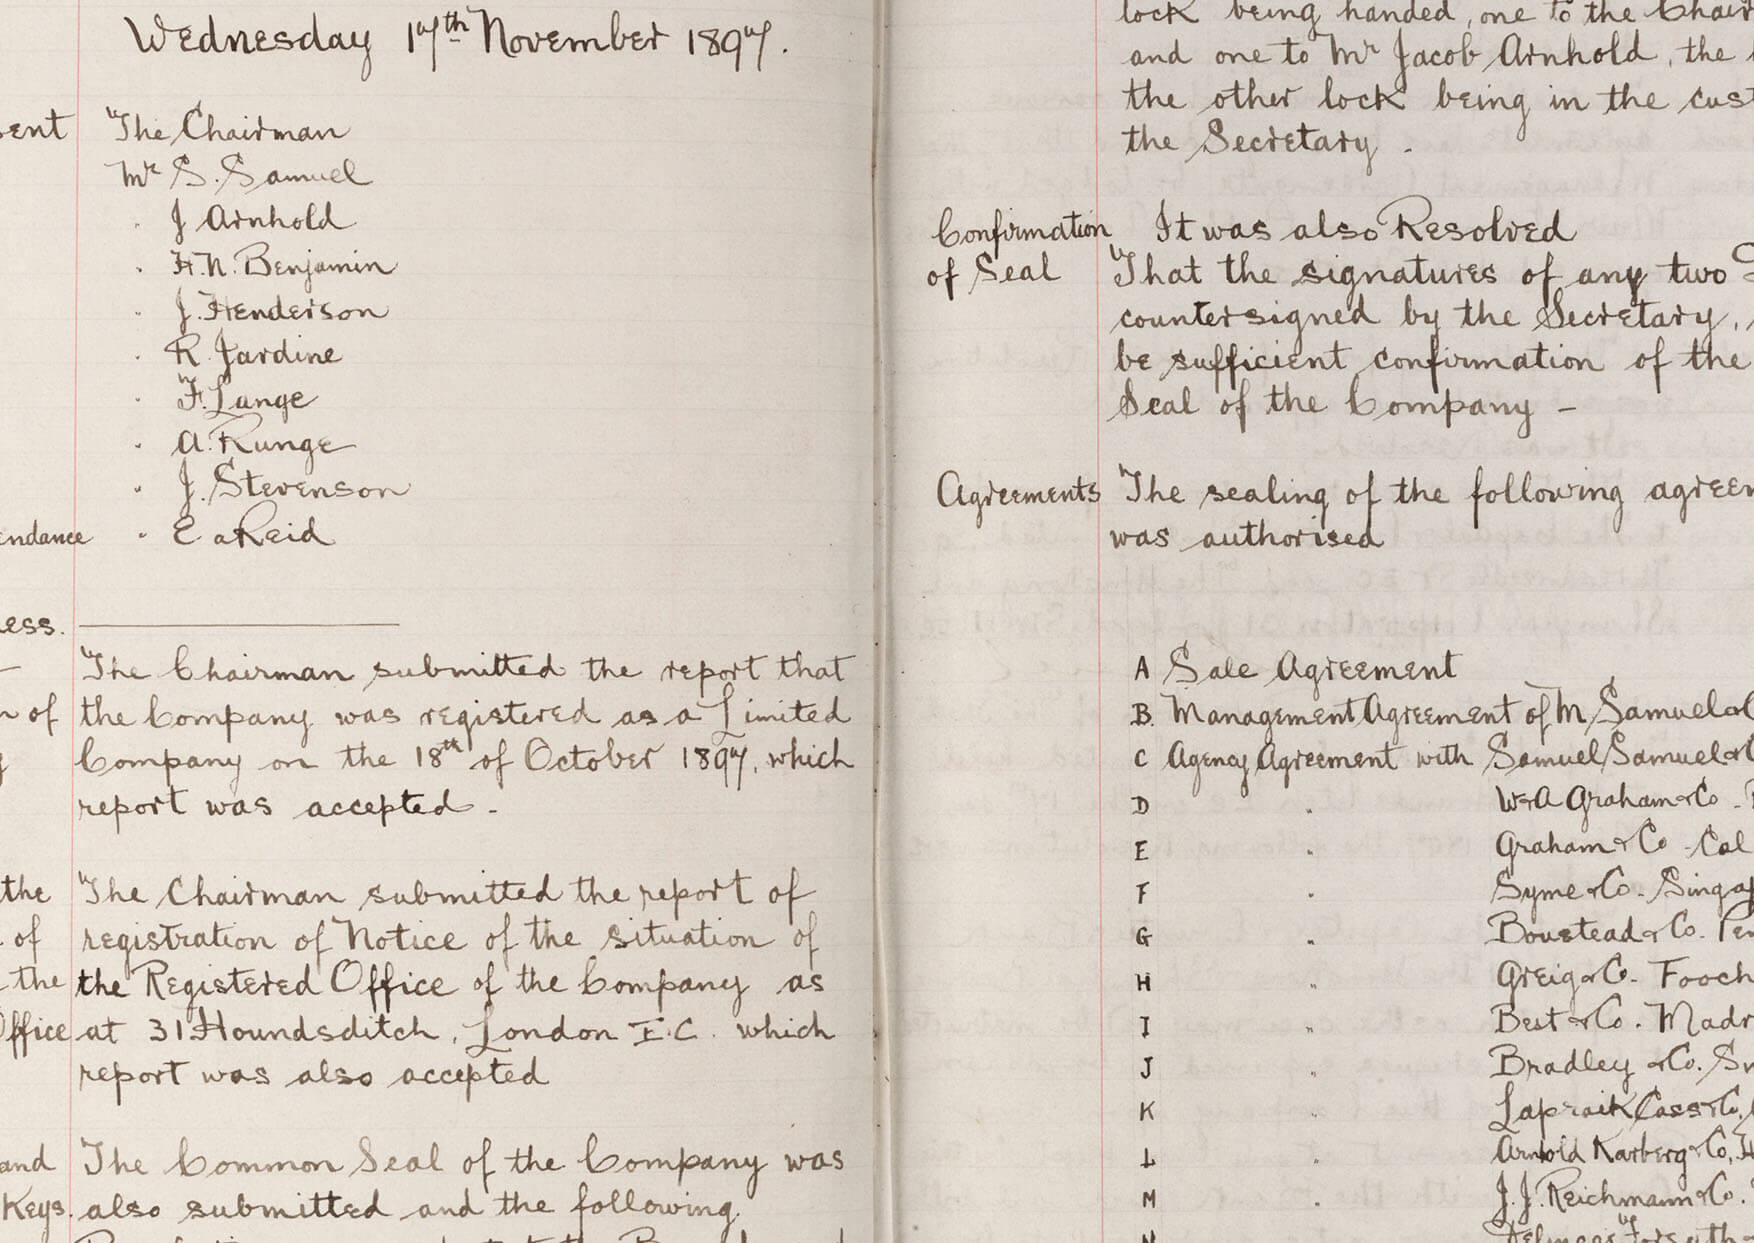 Wednesday 17th November 1897.
The Chairman
Mr S. Samuel
" J Arnhold
" H.N. Benjamin
" J. Henderson
" R. Jardine
" F. Lange
" A. Runge
" J. Stevenson
endance " E a Reid
ess.
The Chairman submitted the report that
of the Company was registered as a Limited
Company on the 18th of October 1897, which
report was accepted -
the The Chairman submitted the report of
of registration of Notice of the situation of
the the Registered Office of the Company as
Office at 31 Houndsditch, London E.C. which
report was also accepted
and The Common Seal of the Company was
Keys. also submitted and the following
lock being handed, one to the Chair
and one to Mr Jacob Arnhold, the
the other lock being in the cust
the Secretary.
Confirmation It was also Resolved
of Seal That the signatures of any two
countersigned by the Secretary,
be sufficient confirmation of the
Seal of the Company -
Agreements The sealing of the following agreem
was authorised
A Sale Agreement
B. Management Agreement of M Samuel & C
C Agency Agreement with Samuel Samuel & C
D " W & A Graham & Co.
E " Graham & Co - Cal
F " Syme & Co. Singap
G " Boustead & Co. Pen
H " Greig & Co. Fooch
I " Best & Co. Madr
J " Bradley & Co. Sw
K " Lapraik Cass & Co,
L " Arnhold Karberg & Co, H
M " J.J. Reichmann & Co.
N Forsyth